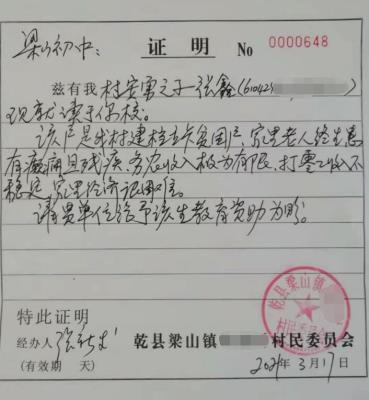 梁山初中： 证明 No 0000648
兹有我村安军之子张鑫(610429
现就读于你校。
该户是我村建档立卡贫困户，家里老人终生患
有癫痫且残疾，务农收入极为有限，打零工收入不
稳定，家里经济很困难。
请贵单位给予该生教育资助为盼。
特此证明
经办人
乾县梁山镇 村民委员会
(有效期 天)
2021年3月17日